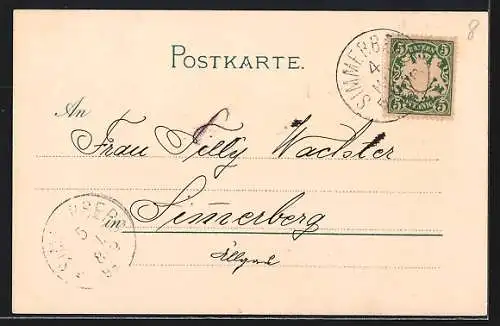 8
POSTKARTE.
SIMMERBA
4
5 BAYERN 5
5 PFENNIG 5
An
Frau Tilly Wachter
in Simerberg
Allgäu
5